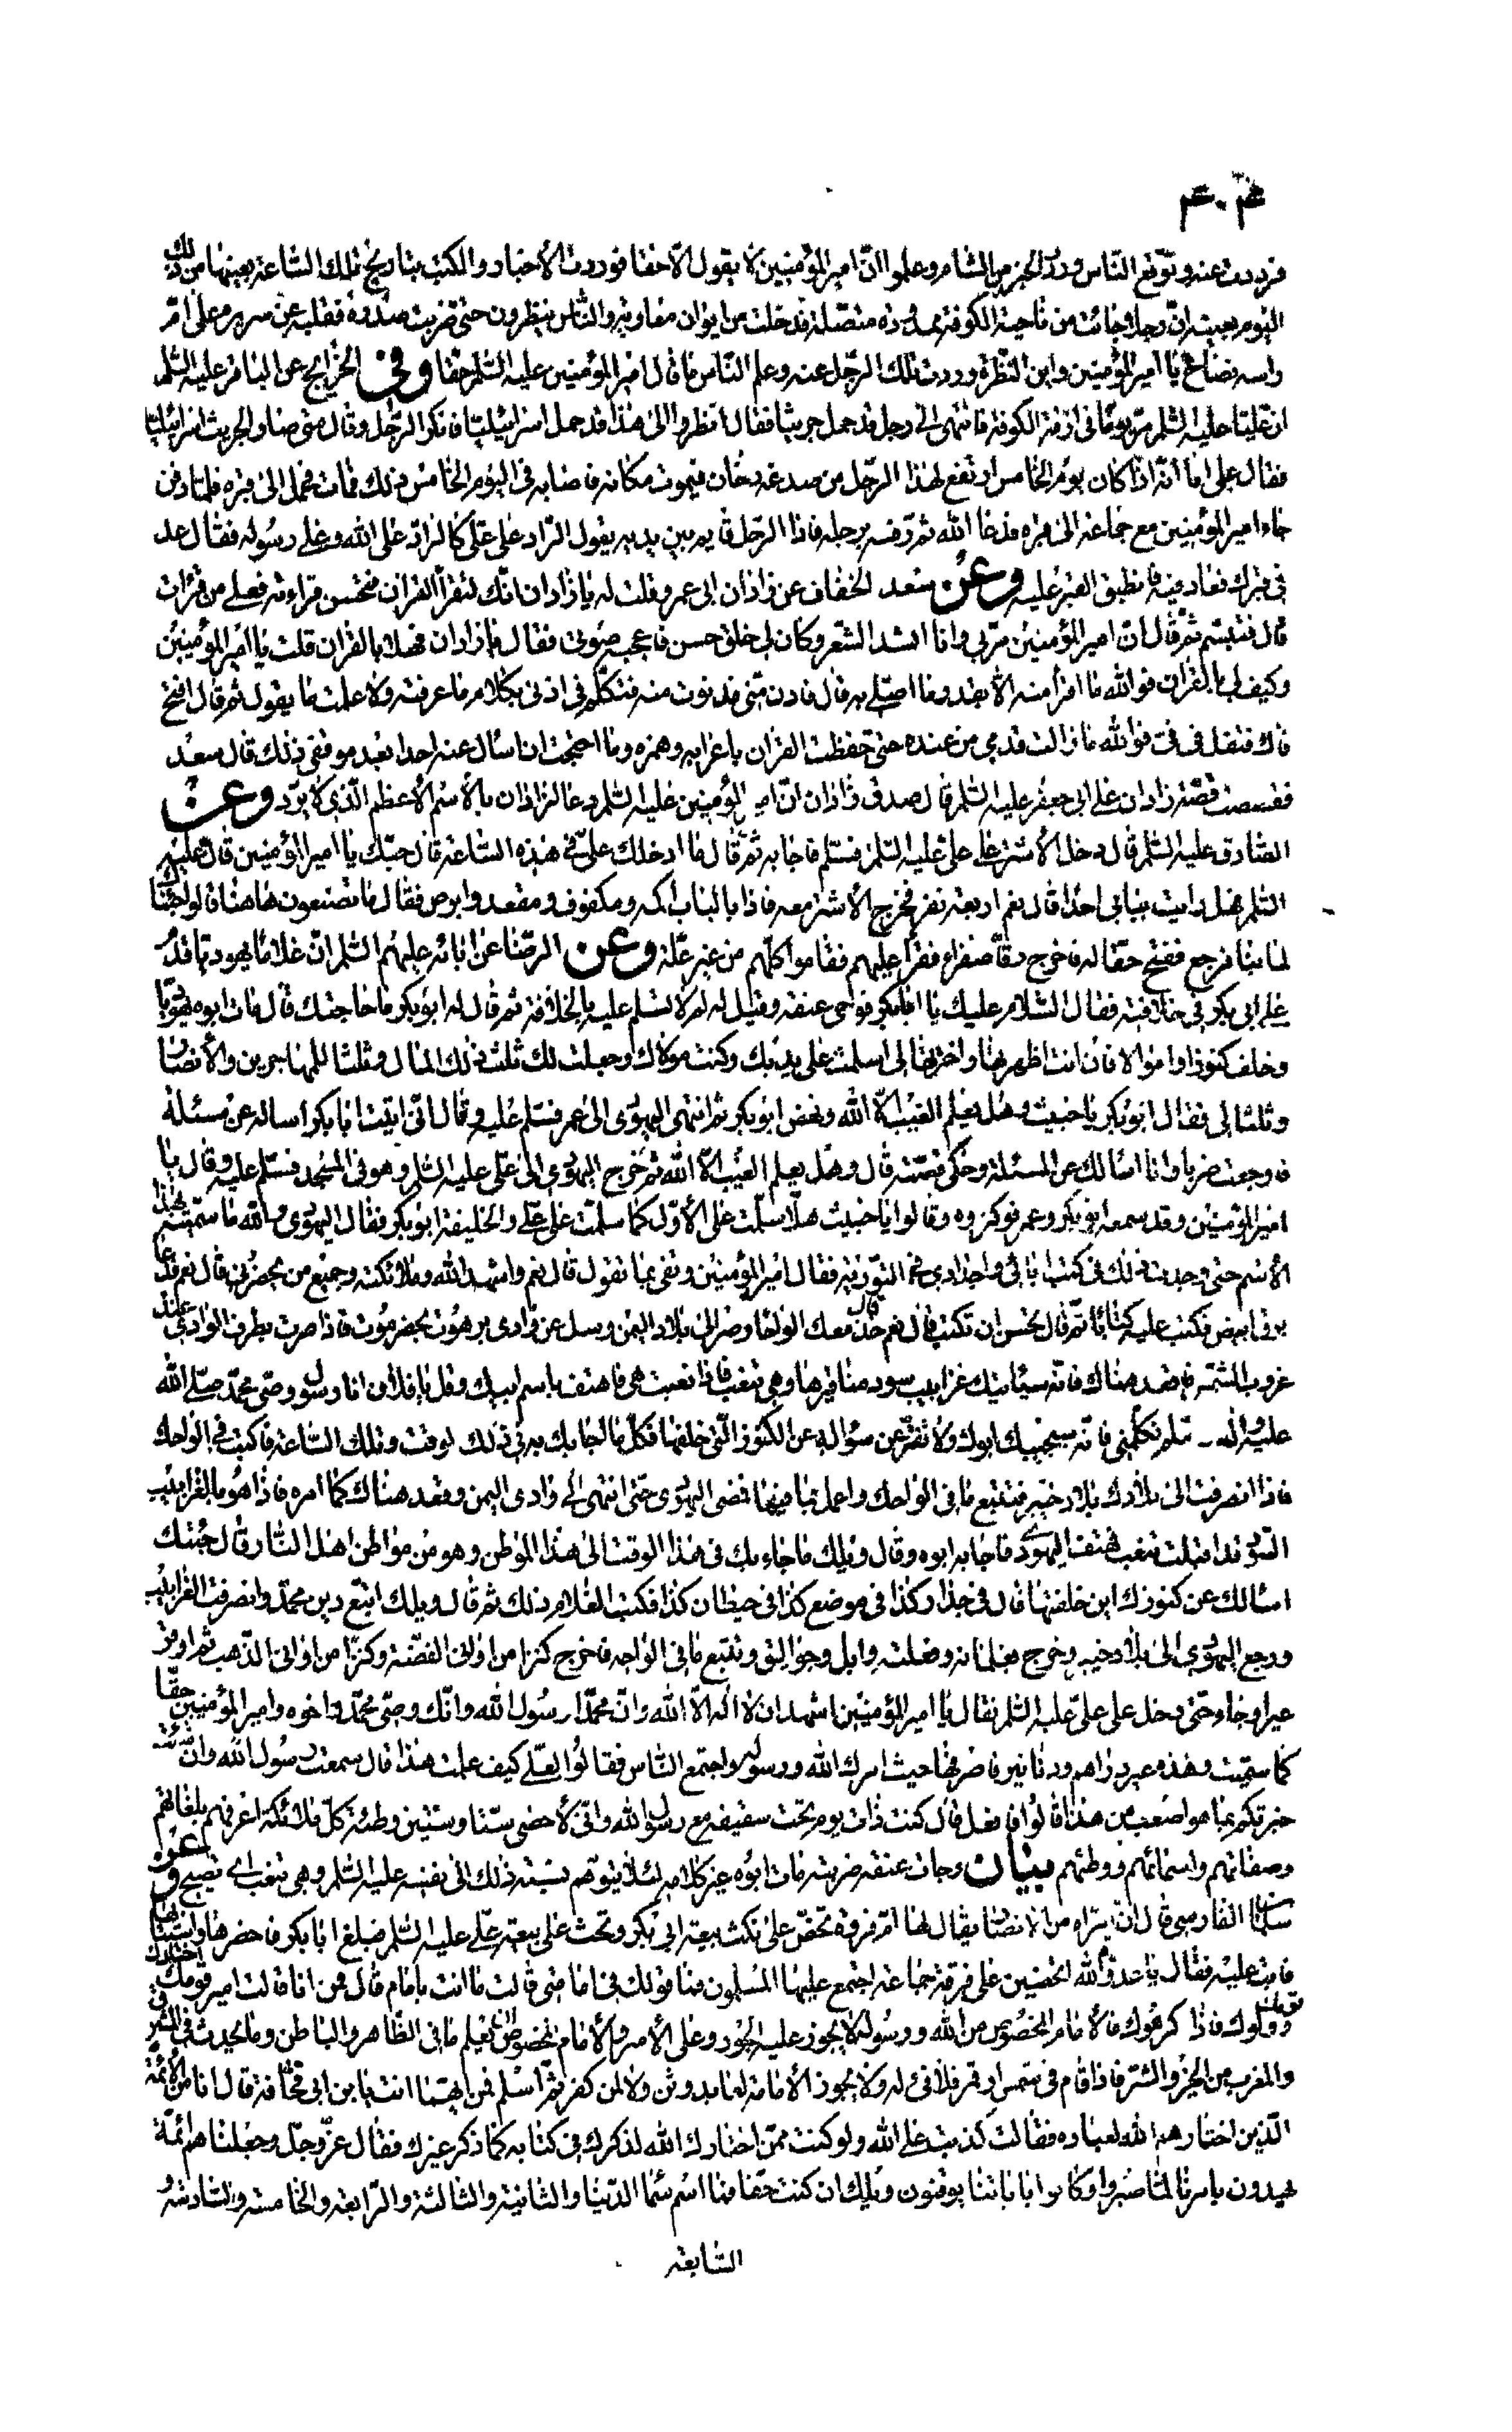 فرددت عنه وتوقع الناس ورود الخبر من الشام وعلموا ان امير المؤمنين لا يقول الا حقا فوردت الأخبار والكتب بتاريخ تلك الساعة بعينها من ذلك
اليوم بعينه ان رجلا جائت من ناحية الكوفة ممدودة متصلة فدخلت من ايوان معاوية والناس ينظرون حتى ضربت صدره فقلبته عن سريره على ام
راسه فصاح يا امير المؤمنين واين النظرة ورددت تلك الرجل عنه وعلم الناس ما قال امير المؤمنين عليه السلم حقا وفى الخرايج عن الباقر عليه السلم
ان عليا عليه السلم مر يوما فى ازقة الكوفة فانتهى الى رجل قد حمل جريثا فقال انظروا الى هذا قد حمل اسرائيليا فانكر الرجل وقال متى صار الجريث اسرائيليا
فقال على اما انه اذا كان يوم الخامس ارتفع لهذا الرجل من صدغه دخان فيموت مكانه فاصابه فى اليوم الخامس ذلك فمات فحمل الى قبره فلما دفن
جاء امير المؤمنين مع جماعة الى قبره فدعا الله ثم رفسه برجله فاذا الرجل قايم بين يديه يقول الراد على على كالراد على الله وعلى رسوله فقال عد
فى قبرك فعاد فيه فانطبق القبر عليه وعن سعد الخفاف عن زاذان ابى عمرو قلت له يا زاذان انك لتقرأ القران فتحسن قراءته فعلى من قرات
قال فتبسم ثم قال ان امير المؤمنين مر بى وانا انشد الشعر وكان لى خلق حسن فاعجبه صوتى فقال يا زاذان فهلا بالقران قلت يا امير المؤمنين
وكيف لى بالقران فوالله ما اقرأ منه الا بقدر ما اصلى به قال فادن منى فدنوت منه فتكلم فى اذنى بكلام ما عرفته ولا علمت ما يقول ثم قال افتح
فاك فتفل فى فى فوالله ما زالت قدمى من عنده حتى حفظت القران باعرابه وهمزه وما احتجت ان اسأل عنه احدا بعد موقفى ذلك قال سعد
فقصصت قصة زاذان على ابى جعفر عليه السلم قال صدق زاذان ان امير المؤمنين عليه السلم دعا لزاذان بالأسم الأعظم الذى لا يرد وعن
الصادق عليه السلم قال دخل الأشتر على على عليه السلم فسلم فاجابه ثم قال ما ادخلك على فى هذه الساعة قال حبك يا امير المؤمنين قال عليه
السلم هل رايت ببابى احدا قال نعم اربعة نفر فخرج الأشتر معه فاذا بالباب اكمه ومكفوف ومقعد وابرص فقال ما تصنعون هاهنا قالوا جئناك
لما بنا فرجع ففتح حقا له فاخرج رقا صفراء فقرأ عليهم فقاموا كلهم من غير علة وعن الرضا عن ابائه عليهم السلم ان غلاما يهوديا قدم
على ابى بكر فى خلافته فقال السلام عليك يا ابا بكر فوجى عنقه وقيل له لم لا تسلم عليه بالخلافة ثم قال له ابو بكر ما حاجتك قال مات ابى يهوديا
وخلف كنوزا واموالا فان انت اظهرتها واخرجتها الى اسلمت على يديك وكنت مولاك وجعلت لك ثلث ذلك المال وثلثا للمهاجرين والأنصار
وثلثا لى فقال ابو بكر يا خبيث وهل يعلم الغيب الا الله ونهض ابو بكر ثم انتهى اليهودى الى عمر فسلم عليه وقال انى اتيت ابا بكر اساله عن مسئلة
فاوجعت ضربا وانا اسالك عن المسئلة وحكى قصته قال وهل يعلم الغيب الا الله ثم خرج اليهودى الى على عليه السلم وهو فى المسجد فسلم عليه وقال يا
امير المؤمنين وقد سمعه ابو بكر وعمر فوكزوه وقالوا يا خبيث هلا سلمت على الأول كما سلمت على على والخليفة ابو بكر فقال اليهودى والله ما سميته بهذا
الأسم حتى وجدت ذلك فى كتب ابائى واجدادى فى التورية فقال امير المؤمنين وتفى بما تقول قال نعم واشهد الله وملائكته وجميع من يحضرنى قال نعم فدعا
برق ابيض فكتب عليه كتابا ثم قال تحسن ان تكتب قال نعم قال خذ معك الواحا وصر الى بلاد اليمن وسل عن وادى برهوت بحضرموت فاذا صرت بطرف الوادى عند
غروب الشمس فاقعد هناك فانه سيأتيك غرابيب سود مناقيرها وهى تنعب فاذا نعبت هى فاهتف باسم ابيك وقل يا فلان انا رسول وصى محمد صلى الله
عليه واله وسلم فكلمنى فانه سيجيبك ابوك ولا تفتر عن سؤاله عن الكنوز التى خلفها فكل ما اجابك به فى ذلك الوقت وتلك الساعة فاكتب فى الواحك
فاذا انصرفت الى بلادك بلاد خيبر فتتبع ما فى الواحك واعمل بما فيها فمضى اليهودى حتى انتهى الى وادى اليمن وقعد هناك كما امره فاذا هو بالغرابيب
السود قد اقبلت تنعب فهتف اليهودى فاجابه ابوه وقال ويلك ما جاء بك فى هذا الوقت الى هذا الموطن وهو من مواطن اهل النار قال جئتك
اسالك عن كنوزك اين خلفتها قال فى جدار كذا فى موضع كذا فى حيطان كذا فكتب الغلام ذلك ثم قال ويلك اتبع دين محمد وانصرفت الغرابيب
ورجع اليهودى الى بلاد خيبر وخرج بغلمانه وفعلته وابل وجواليق وتتبع ما فى الواحه فاخرج كنزا من اوانى الفضة وكنزا من اوانى الذهب ثم اوقر
عيرا وجاء حتى دخل على على عليه السلم فقال يا امير المؤمنين اشهد ان لا اله الا الله وان محمدا رسول الله وانك وصى محمد واخوه وامير المؤمنين حقا
كما سميت وهذه عير دراهم ودنانير فاصرفها حيث امرك الله ورسوله واجتمع الناس فقالوا لعلى كيف علمت هذا قال سمعت رسول الله وان شئت
خبرتكم بما هو اصعب من هذا قالوا فافعل قال كنت ذات يوم تحت سقيفة مع رسول الله وانى لأحصى ستا وستين وطئة كل ملائكة اعرفهم بلغاتهم
وصفاتهم واسمائهم ووطئهم بيان وجات عنقه ضربته مات ابوه غير كلامه لئلا يتوهم نسبته ذلك الى نفسه عليه السلم وهى تنعب اى تصيح وعن
سلمان الفارسى قال ان امراة من الانصار يقال لها ام فروة تحض على نكث بيعة ابى بكر وتحث على بيعة على عليه السلم فبلغ ابا بكر فاحضرها واستتابها
فابت عليه فقال يا عدوة الله اتحضين على فرقة جماعة اجتمع عليها المسلمون فما قولك فى امامتى قالت ما انت بامام قال فمن انا قالت امير قومك
اختارك قومك وولوك فاذا كرهوك فالأمام المخصوص من الله ورسوله لا يجوز عليه الجور وعلى الأمير والأمام المخصوص ان يعلم ما فى الظاهر والباطن وما يحدث فى المشرق
والمغرب من الخير والشر فاذا قام فى شمس او قمر فلا فىء له ولا يجوز الأمامة لعابد وثن ولا لمن كفر ثم اسلم فمن ايهما انت يا بن ابى قحافة قال انا من الأئمة
الذين اختارهم الله لعباده فقالت كذبت على الله ولو كنت ممن اختارك الله لذكرك فى كتابه كما ذكر غيرك فقال عز وجل وجعلناهم ائمة
يهدون بامرنا لما صبروا وكانوا باياتنا يوقنون ويلك ان كنت حقا فما اسم سماء الدنيا والثانية والثالثة والرابعة والخامسة والسادسة و
السابعة